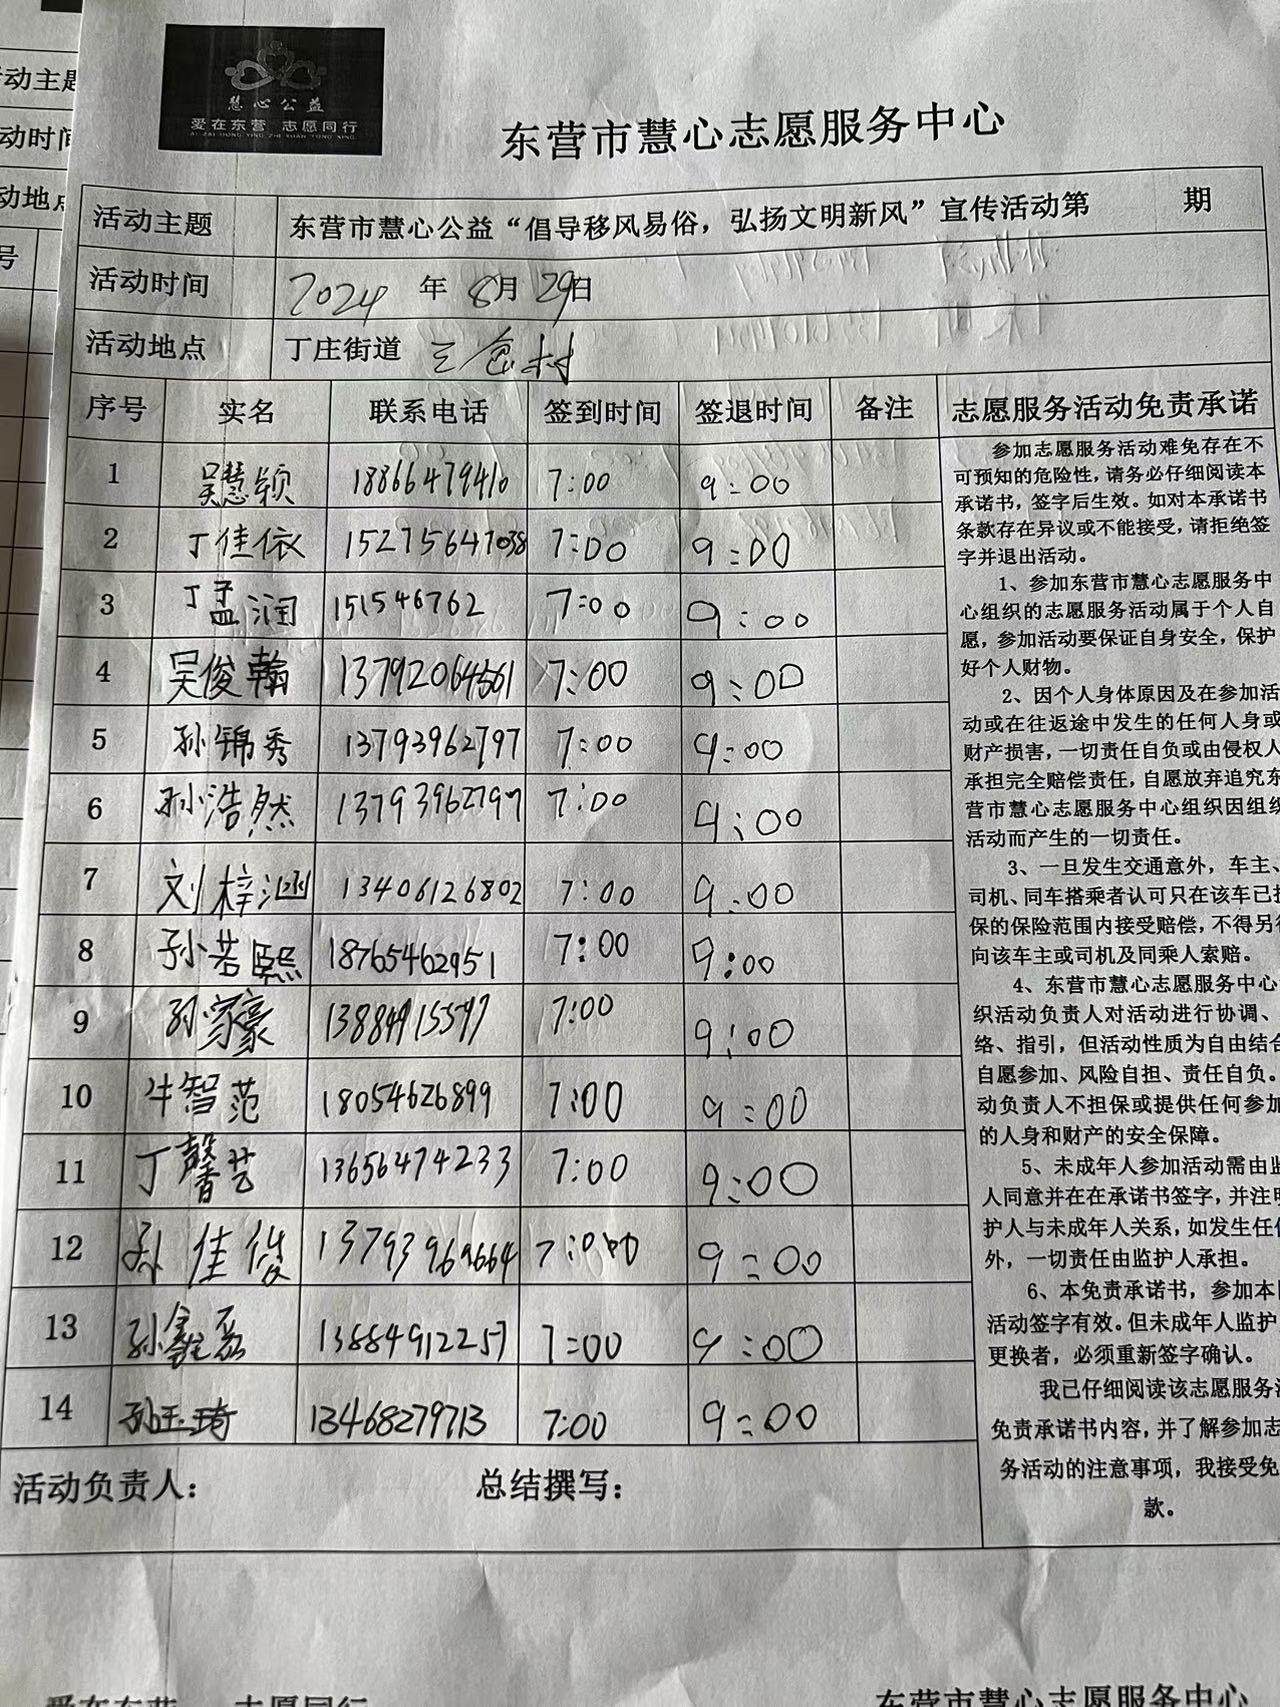 动主题
动时间
动地点
号
慧心公益
爱在东营 志愿同行
AI ZAI DONG YING ZHI YUAN TONG XING
东营市慧心志愿服务中心
活动主题 东营市慧心公益“倡导移风易俗，弘扬文明新风”宣传活动第 期
活动时间 2024 年 8月 29日
活动地点 丁庄街道 村
序号 实名 联系电话 签到时间 签退时间 备注 志愿服务活动免责承诺
1 吴慧颖 18866479410 7:00 9:00
2 丁佳依 15275647038 7:00 9:00
3 丁孟润 151546762 7:00 9:00
4 吴俊翰 13792064561 7:00 9:00
5 孙锦秀 13793962797 7:00 9:00
6 孙浩然 13793962797 7:00 9:00
7 刘梓涵 13406126802 7:00 9:00
8 孙若熙 18765462951 7:00 9:00
9 孙家豪 13884915597 7:00 9:00
10 牛智范 18054626899 7:00 9:00
11 丁馨艺 13656474233 7:00 9:00
12 孙佳俊 7:00 9:00
13 孙鑫磊 13884912257 7:00 9:00
14 孙玉琦 13468279713 7:00 9:00
参加志愿服务活动难免存在不
可预知的危险性，请务必仔细阅读本
承诺书，签字后生效。如对本承诺书
条款存在异议或不能接受，请拒绝签
字并退出活动。
1、参加东营市慧心志愿服务中
心组织的志愿服务活动属于个人自
愿，参加活动要保证自身安全，保护
好个人财物。
2、因个人身体原因及在参加活
动或在往返途中发生的任何人身或
财产损害，一切责任自负或由侵权人
承担完全赔偿责任，自愿放弃追究东
营市慧心志愿服务中心组织因组织
活动而产生的一切责任。
3、一旦发生交通意外，车主、
司机、同车搭乘者认可只在该车已投
保的保险范围内接受赔偿，不得另行
向该车主或司机及同乘人索赔。
4、东营市慧心志愿服务中心
织活动负责人对活动进行协调、
络、指引，但活动性质为自由结合
自愿参加、风险自担、责任自负。
动负责人不担保或提供任何参加
的人身和财产的安全保障。
5、未成年人参加活动需由监
人同意并在在承诺书签字，并注明
护人与未成年人关系，如发生任何
外，一切责任由监护人承担。
6、本免责承诺书，参加本
活动签字有效。但未成年人监护
更换者，必须重新签字确认。
我已仔细阅读该志愿服务活
免责承诺书内容，并了解参加志
务活动的注意事项，我接受免
款。
活动负责人： 总结撰写：
爱在东营 志愿同行
东营市慧心志愿服务中心